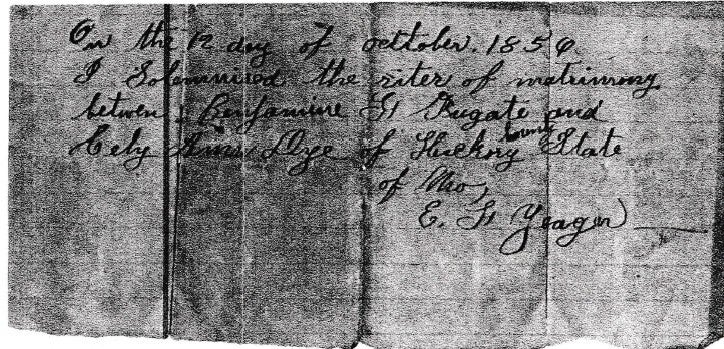 On the 12 day of octtober. 1856
I Solemnised the rites of matrimony
betwen Benjamine H Fugate and
Cely Ann Dye of Hickory County State
of Mo,
E. H Yeager